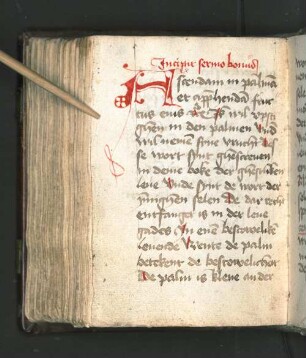 Incipit sermo bonus
Ascendam in palmam
et apphendā fruc
tus eius Ik wil vp
ghen in den palmen vnd
wil nemen sine vrucht De
se wort sint ghescreuen
in deme boke der
leue Vnde sint de wort der
ynnighen selen De dar recht
entfanget is in der leue
gades In enē beschowelike
leuende Wente de palm
betekent de beschowelicheit
De palm is klene an der